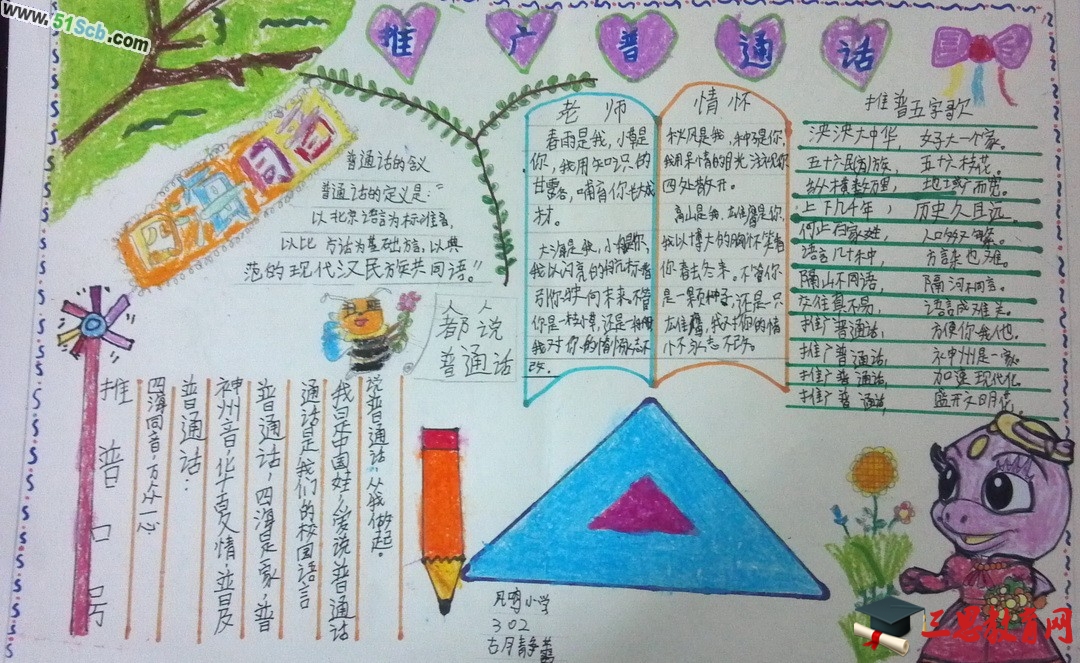 www.51Scb.com
推广普通话
四海同音
普通话的含义
普通话的定义是:“
以北京语言为标准音,
以北 方话为基础方言,以典
范的现代汉民族共同语。”
人人
都说
普通话
老师
春雨是我,小草是
你,我用知识的
甘露,哺育你长大成
材。
大海是我,小船是你,
我以闪亮的航标
引你驶向未来。不管
情怀
秋风是我,种子是你,
我用深情的目光注视你
四处散开。
高山是我,
我以博大的胸怀等着
你春去冬来。不管你
是一颗种子,还是一只
推普五字歌
泱泱大中华, 好大一个家。
五十六民族, 五十六枝花。
纵横数万里, 地域广而宽。
上下几千年, 历史久且远。
何止百家姓, 人口多又繁。
语言几十种, 方言也难。
隔山不同语, 隔河不同言。
交往真不易, 语言成难关。
推广普通话, 方便你我他。
推广普通话, 神州是一家。
推广普通话, 加速现代化。
推广普通话, 盛开文明花。
说普通话,从我做起。
我是中国娃,爱说普通话
通话是我们的校园语言
普通话,四海是一家,普
神州音,华夏情,普及
普通话:
四海同音,万众一心
推普口号
凤鸣小学
302
古月静
三思教育网